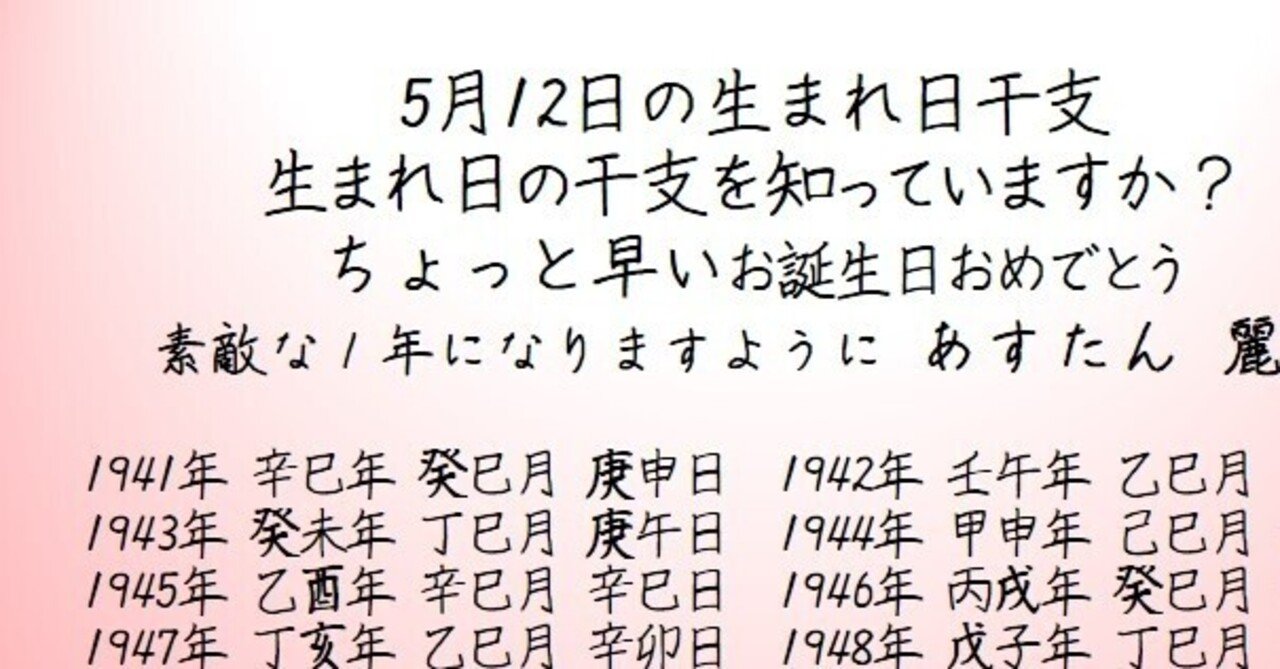 5月12日の生まれ日干支
生まれ日の干支を知っていますか？
ちょっと早いお誕生日おめでとう
素敵な1年になりますように あすたん 麗
1941年 辛巳年 癸巳月 庚申日 1942年 壬午年 乙巳月
1943年 癸未年 丁巳月 庚午日 1944年 甲申年 己巳月
1945年 乙酉年 辛巳月 辛巳日 1946年 丙戌年 癸巳月
1947年 丁亥年 乙巳月 辛卯日 1948年 戊子年 丁巳月